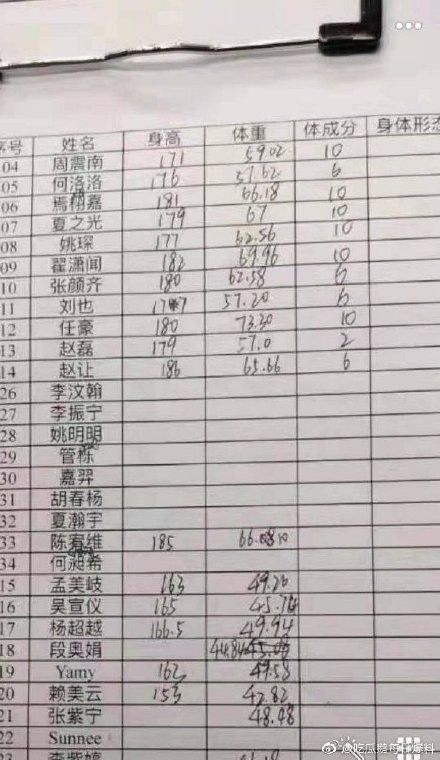 序号 姓名 身高 体重 体成分 身体形态
04 周震南 171 59.02 10
05 何洛洛 176 57.62 6
06 焉栩嘉 181 66.18 10
07 夏之光 179 67 10
08 姚琛 177 62.56 10
09 翟潇闻 182 69.96 10
10 张颜齐 180 62.58 6
11 刘也 177 57.20 6
12 任豪 180 73.30 10
13 赵磊 179 57.0 2
14 赵让 186 65.66 6
26 李汶翰
27 李振宁
28 姚明明
29 管栎
30 嘉羿
31 胡春杨
32 夏瀚宇
33 陈宥维 185 66.08 10
34 何昶希
15 孟美岐 163 49.20
16 吴宣仪 165 45.74
17 杨超越 166.5 49.94
18 段奥娟 44.84
19 Yamy 162 49.58
20 赖美云 153 42.82
21 张紫宁 48.48
22 Sunnee
23 李紫婷
@吃瓜群每日爆料